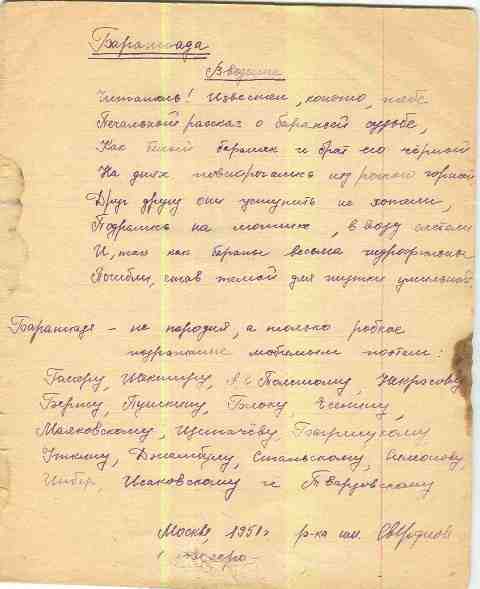 Бараниада
Введение
Читатель! Известен, конечно, тебе
Печальный рассказ о бараньей судьбе,
Как белый баран и брат его чёрный
На днях повстречались над речкой горной
Друг другу они уступить не хотели,
Подрались на мостике, в воду слетели
И, так как бараны весьма
Погибли, став темой для шутки
Бараниада - не пародия, а только робкое
подражание любимым поэтам:
Гомеру, Шекспиру, А.К. Толстому, Некрасову
Бернсу, Пушкину, Блоку, Есенину,
Маяковскому, Щипачёву, Багрицкому,
Уткину, Джамбулу, Стальскому, Симонову,
Инбер, Исаковскому и Твардовскому
Москва 1951г р-ка им. Свердлова